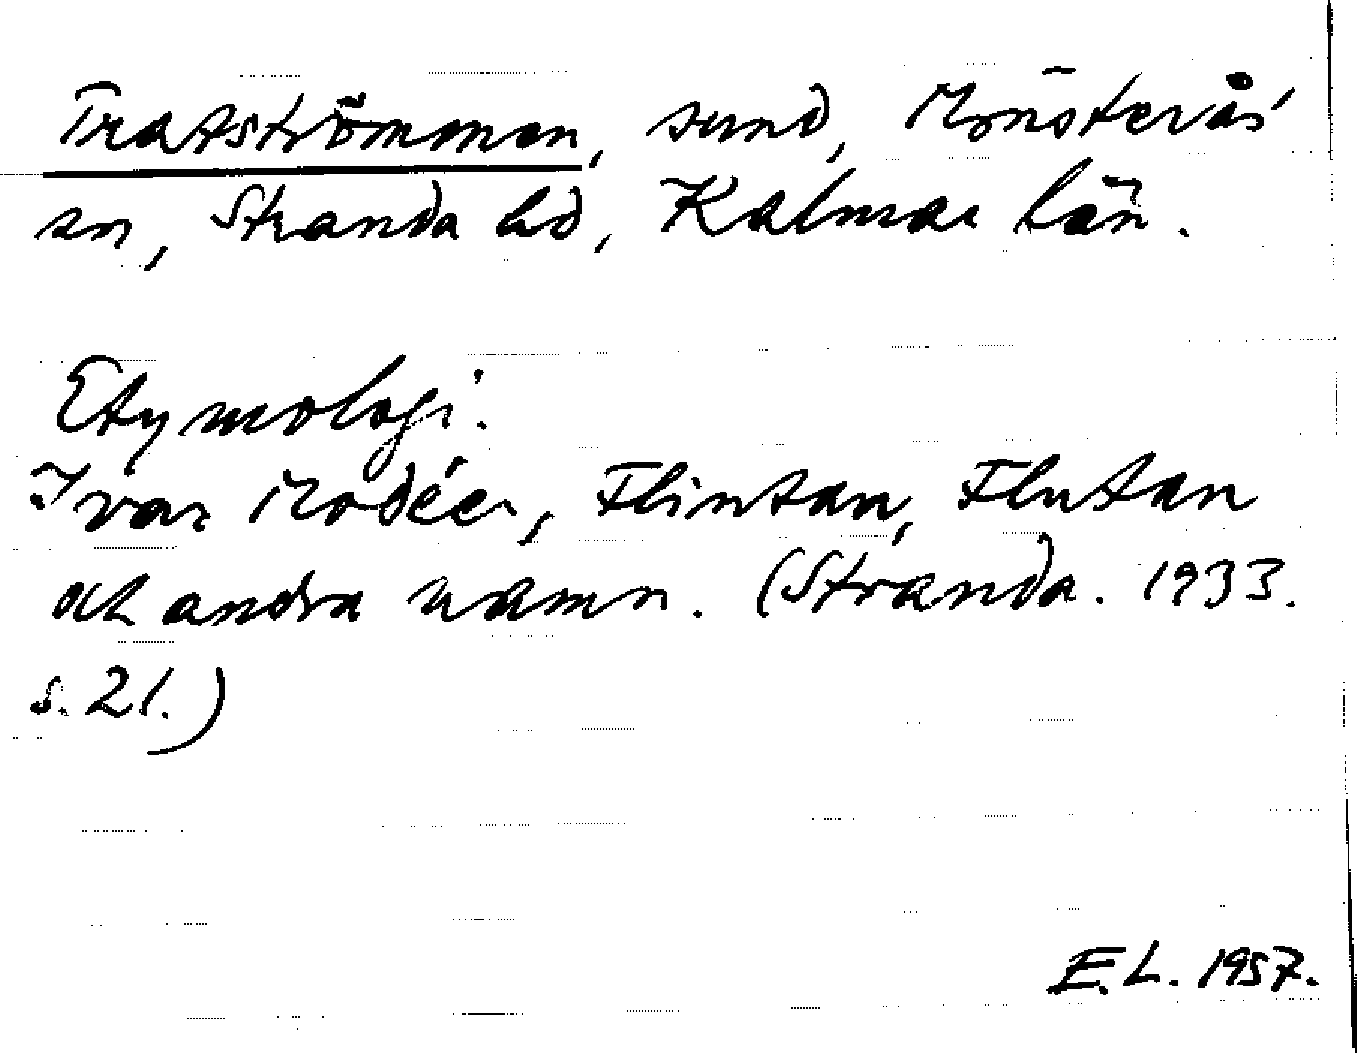 Tratströmmen, sund, Mönsterås
sn, Stranda hd, Kalmar län.
Etymologi:
Ivar Modéer, Flintan, Flutan
och andra namn. (Stranda. 1933.
s. 21.)
E.L. 1957.